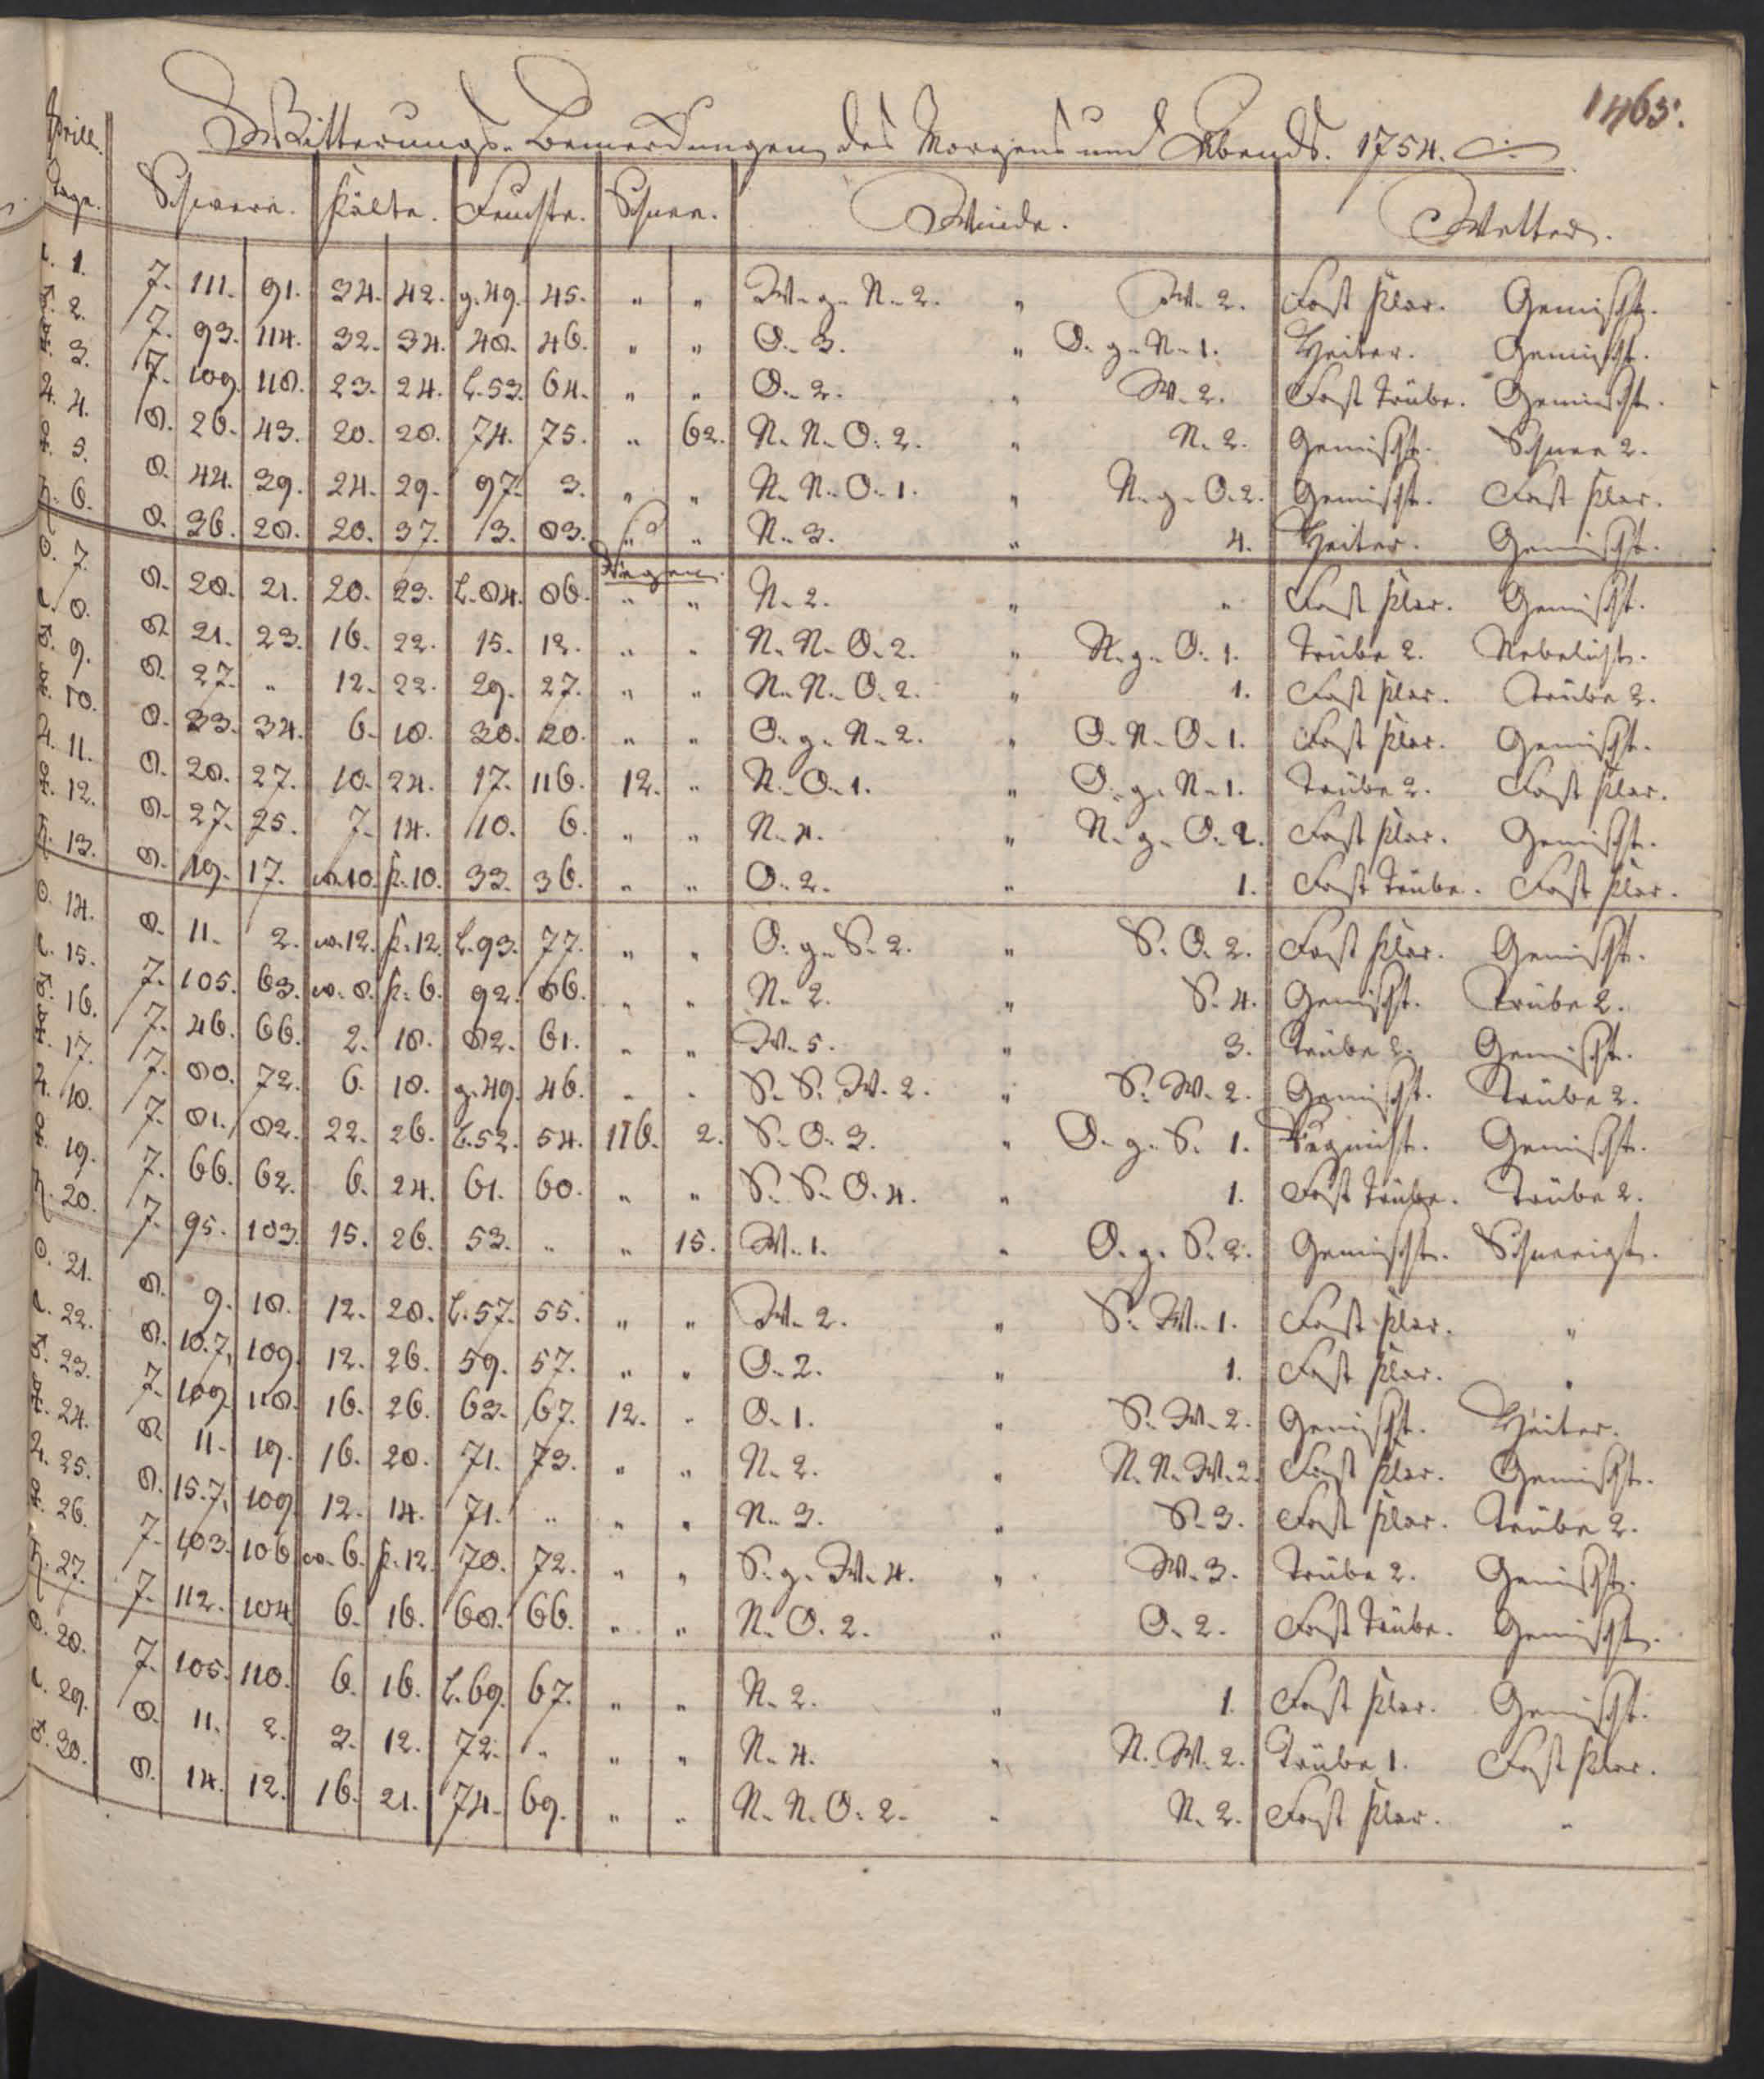 1465.
Aprill.
Witterungs-Bemerckungen des Morgens und Abends. 1754.
Tage. Schwere. Kälte. Feuchte. Schnee. Winde. Wetter.
☾. 1. 7. 111. 91. 34. 42. g. 49. 45. " " W. g. N. 2. " W. 2. Fast klar. Gemischt.
♂. 2. 7. 93. 114. 32. 34. 48. 46. " " O. 3. " O. g. N. 1. Heiter. Gemischt.
☿. 3. 7. 109. 118. 23. 24. l. 53. 64. " " O. 2. " W. 2. Fast trübe. Gemischt.
♃. 4. 8. 26. 43. 20. 28. 74. 75. " 62. N. N. O. 2. " N. 2. Gemischt. Schnee 2.
♀. 5. 8. 44. 39. 24. 29. 97. 3. " " N. N. O. 1. " N. g. O. 2. Gemischt. Fast klar.
♄. 6. 8. 36. 28. 20. 37. 3. 83. " " N. 3. " 4. Heiter. Gemischt.
Regen.
☉. 7. 8. 28. 21. 20. 23. l. 84. 86. " " N. 2. " " Fast klar. Gemischt.
☾. 8. 8. 21. 23. 16. 22. 15. 12. " " N. N. O. 2. " N. g. O. 1. Trübe 2. Nebelicht.
♂. 9. 8. 27. " 12. 22. 29. 27. " " N. N. O. 2. " 1. Fast klar. Trübe 2.
☿. 10. 8. 33. 34. 6. 18. 30. 20. " " O. g. N. 2. " O. N. O. 1. Fast klar. Gemischt.
♃. 11. 8. 28. 27. 10. 24. 17. 116. 12. " N. O. 1. " O. g. N. 1. Trübe 2. Fast klar.
♀. 12. 8. 27. 25. 7. 14. 110. 6. " " N. 4. " N. g. O. 2. Fast klar. Gemischt.
♄. 13. 8. 19. 17. w. 10. k. 10. 33. 36. " " O. 2. " 1. Fast trübe. Fast klar.
☉. 14. 8. 11. 2. w. 12. k. 12. l. 93. 77. " " O. g. S. 2. " S. O. 2. Fast klar. Gemischt.
☾. 15. 7. 105. 63. w. 8. k. 6. 92. 86. " " N. 2. " S. 4. Gemischt. Trübe 2.
♂. 16. 7. 46. 66. 2. 18. 82. 61. " " W. 5. " 3. Trübe 2. Gemischt.
☿. 17. 7. 80. 72. 6. 18. g. 49. 46. " " S. S. W. 2. " S. W. 2. Gemischt. Trübe 2.
♃. 18. 7. 81. 82. 22. 26. l. 52. 54. 116. 2. S. O. 3. " O. g. S. 1. Regnicht. Gemischt.
♀. 19. 7. 66. 62. 6. 24. 61. 60. " " S. S. O. 4. " 1. Fast trübe. Trübe 2.
♄. 20. 7. 95. 103. 15. 26. 53. " " 15. W. 1. " O. g. S. 2. Gemischt. Schneeigt.
☉. 21. 8. 9. 18. 12. 28. l. 57. 55. " " W. 2. " S. W. 1. Fast klar. "
☾. 22. 8. 10. 7. 109. 12. 26. 59. 57. " " O. 2. " 1. Fast klar. "
♂. 23. 7. 109. 118. 16. 26. 63. 67. 12. " O. 1. " S. W. 2. Gemischt. Heiter.
☿. 24. 8. 11. 19. 16. 20. 71. 73. " " N. 2. " N. N. W. 2. Fast klar. Gemischt.
♃. 25. 8. 15. 7. 109. 12. 14. 71. " " " N. 3. " S. 3. Fast klar. Trübe 2.
♀. 26. 7. 103. 106 w. 6. k. 12. 70. 72. " " S. g. W. 4. " W. 3. Trübe 2. Gemischt.
♄. 27. 7. 112. 104 6. 16. 68. 66. " " N. O. 2. " O. 2. Fast trübe. Gemischt.
☉. 28. 7. 105. 110. 6. 16. l. 69. 67. " " N. 2. " 1. Fast klar. Gemischt.
☾. 29. 8. 11. 2. 2. 12. 72. " " " N. 4. " N. W. 2. Trübe 1. Fast klar.
♂. 30. 8. 14. 12. 16. 21. 74. 69. " " N. N. O. 2. " N. 2. Fast klar. "